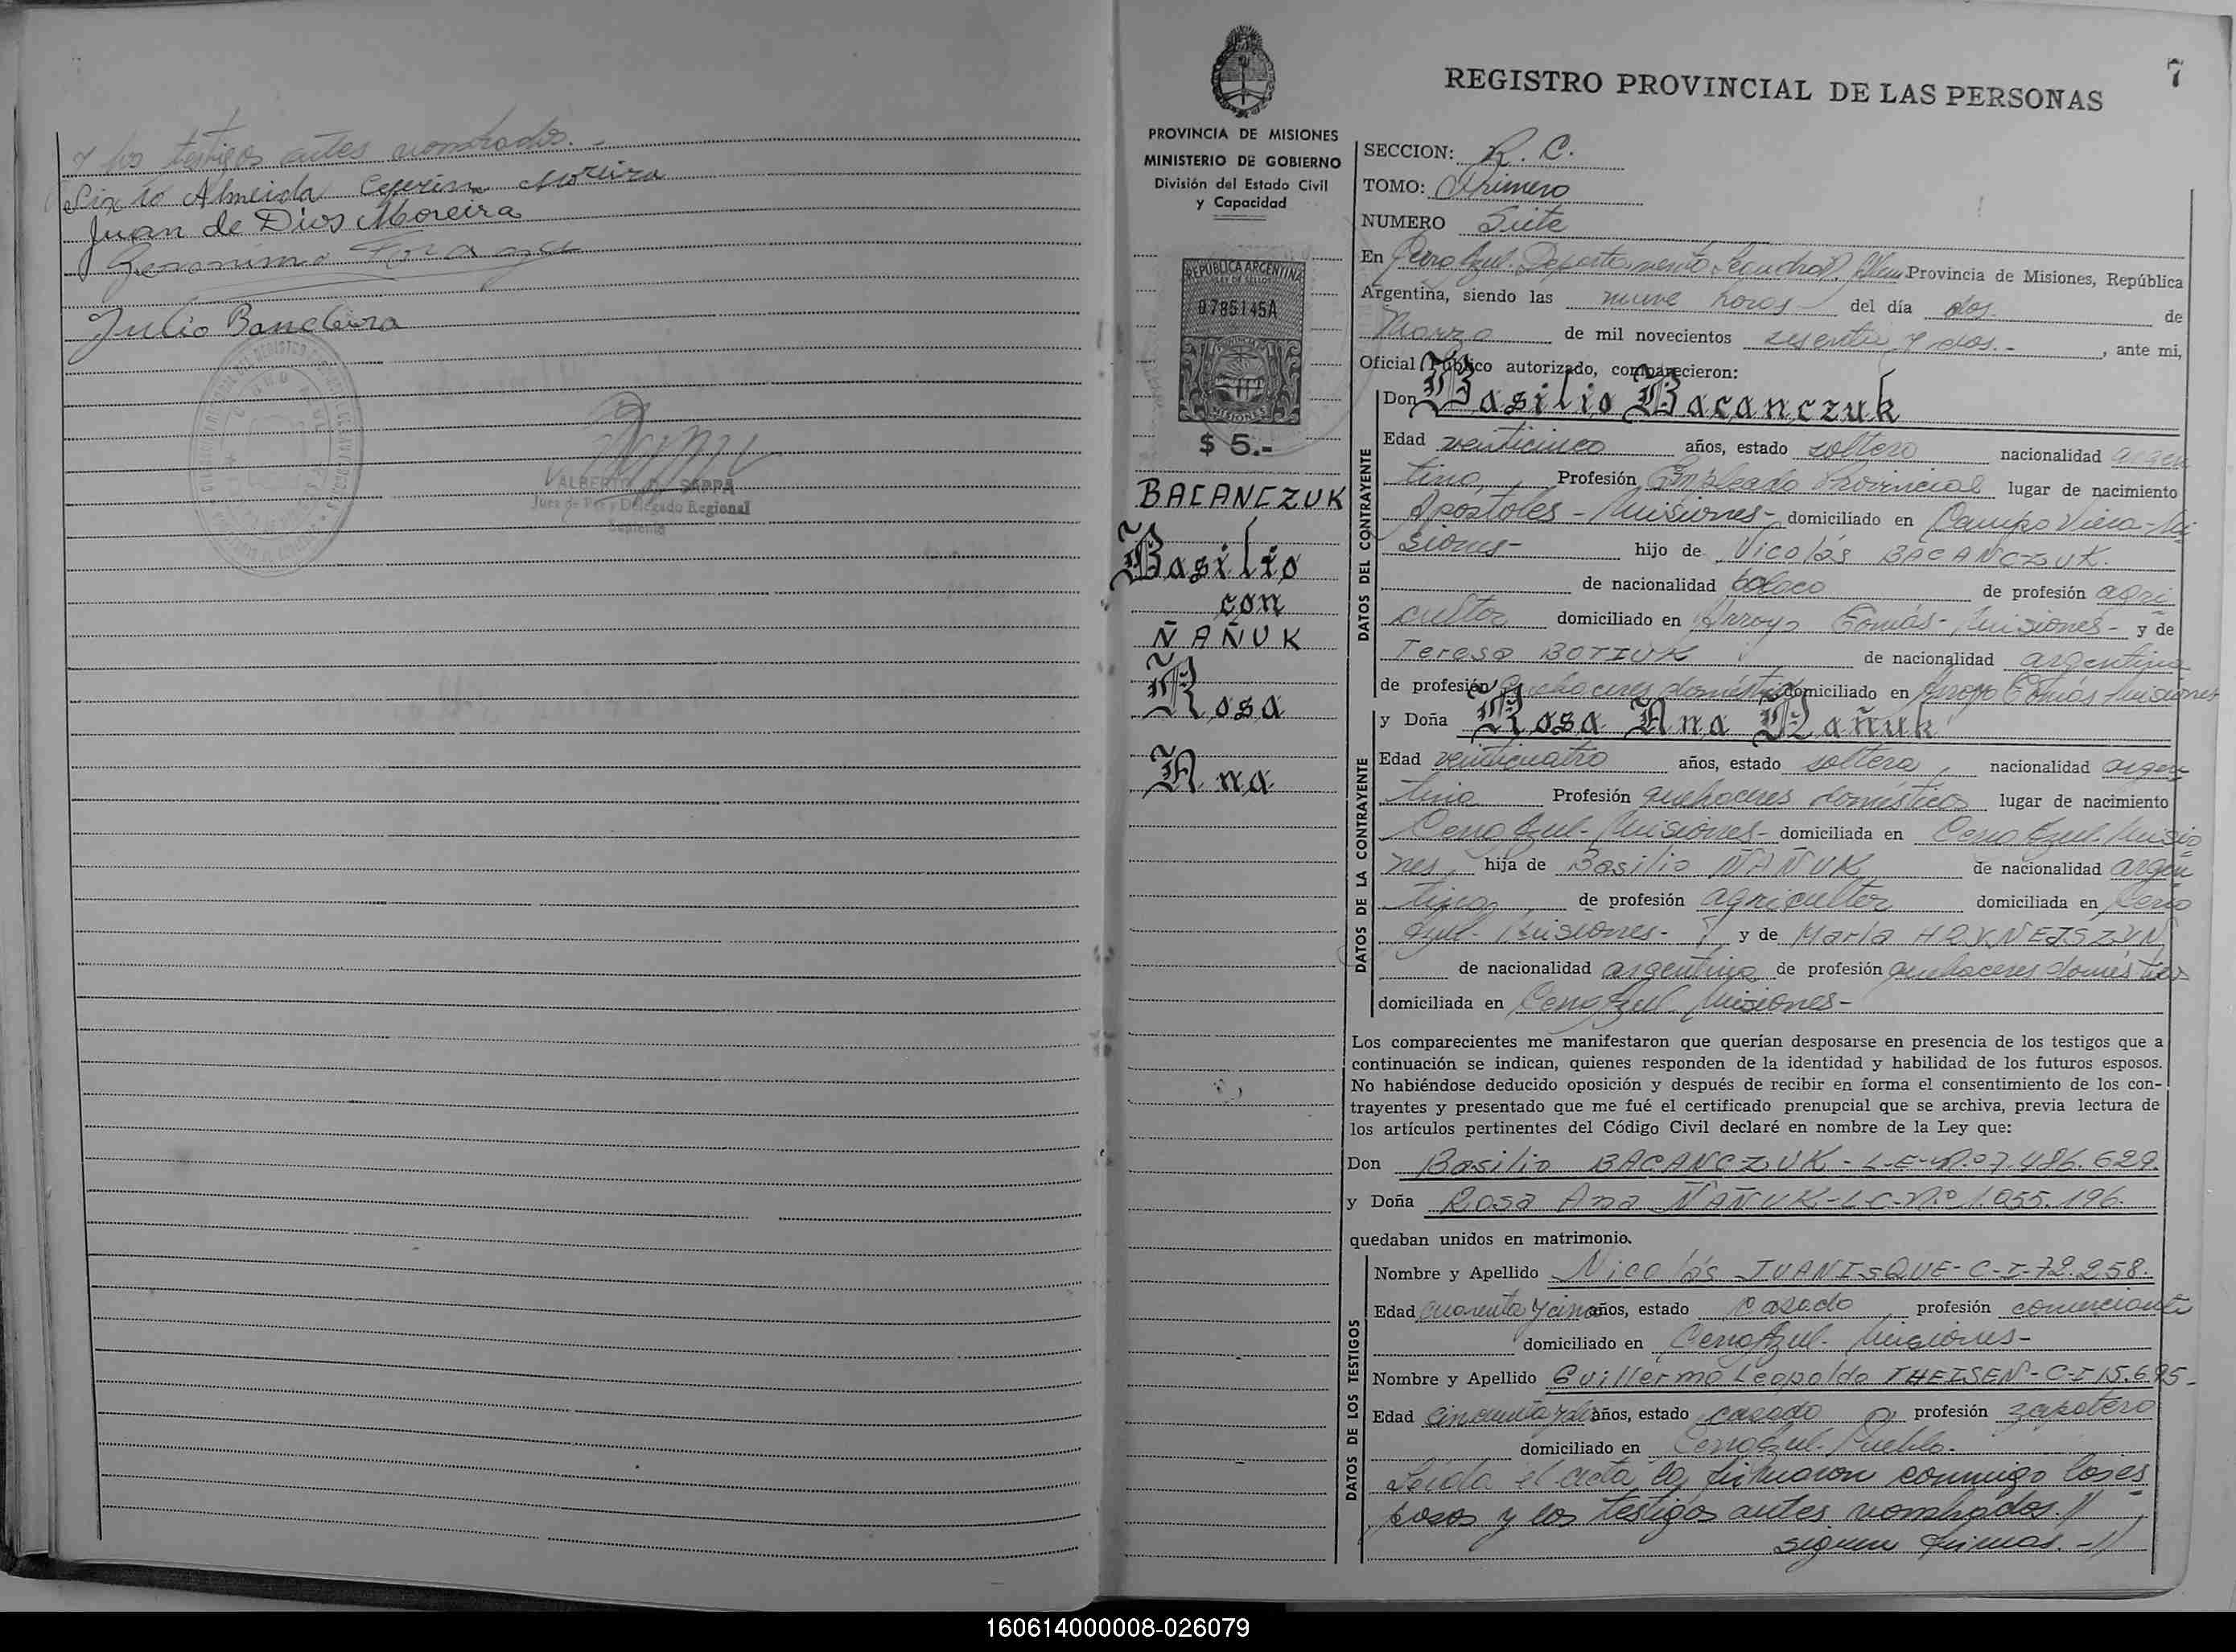 y los testigos antes nombrados.-
Sixto Almeida Ceferina Moreira
Juan de Dios Moreira
Geronimo Fraga
Julio Bandera
ALBERTO SAPPA
Juez de Paz y Delegado Regional
Suplente
7
REGISTRO PROVINCIAL DE LAS PERSONAS
PROVINCIA DE MISIONES
MINISTERIO DE GOBIERNO
División del Estado Civil
y Capacidad
REPUBLICA ARGENTINA
LEY DE SELLOS
0785145A
MISIONES
$ 5.-
BACANCZUK
Basilio
con
ÑAÑUK
Rosa
Ana
SECCION: R. C.
TOMO: Primero
NUMERO Siete
En Cerro Azul. Departamento Leandro N. Alem Provincia de Misiones, República
Argentina, siendo las nueve horas del día dos de
Marzo de mil novecientos sesenta y dos.- , ante mi,
Oficial Público autorizado, comparecieron:
DATOS DEL CONTRAYENTE
Don Basilio Bacanczuk
Edad veinticinco años, estado soltero nacionalidad argen
tino, Profesión Empleado Provincial lugar de nacimiento
Apostoles - Misiones- domiciliado en Campo Viera-Mi
siones- hijo de Nicolás BACANCZUK.
de nacionalidad polaco de profesión agri
cultor domiciliado en Arroyo Tomás-Misiones- y de
Teresa BOTIUK de nacionalidad argentina
de profesión quehaceres domésticos domiciliado en Arroyo Tomás Misiones
DATOS DE LA CONTRAYENTE
y Doña Rosa Ana Ñañuk
Edad veinticuatro años, estado soltera, nacionalidad argen
tina Profesión quehaceres domésticos lugar de nacimiento
Cerro Azul-Misiones- domiciliada en Cerro Azul-Misio
nes, hija de Basilio ÑAÑUK de nacionalidad argen
tino, de profesión agricultor domiciliada en Cerro
Azul-Misiones- y de Maria HRYNEJSZYN
de nacionalidad argentina de profesión quehaceres domésticos
domiciliada en Cerro Azul-Misiones-
Los comparecientes me manifestaron que querían desposarse en presencia de los testigos que a
continuación se indican, quienes responden de la identidad y habilidad de los futuros esposos.
No habiéndose deducido oposición y después de recibir en forma el consentimiento de los con-
trayentes y presentado que me fué el certificado prenupcial que se archiva, previa lectura de
los artículos pertinentes del Código Civil declaré en nombre de la Ley que:
Don Basilio BACANCZUK-L-E-Nº 7.486.629.
y Doña Rosa Ana ÑAÑUK-L-C-Nº 1.055.196.
quedaban unidos en matrimonio.
DATOS DE LOS TESTIGOS
Nombre y Apellido Nicolás JUANISQUE-C-I-72.258.
Edad cuarenta y cinco años, estado casado, profesión comerciante
domiciliado en Cerro Azul-Misiones-
Nombre y Apellido Guillermo Leopoldo THEISEN-C-I 15.695-
Edad cincuenta y dos años, estado casado profesión zapatero
domiciliado en Cerro Azul-Pueblo-
Leida el acta la firmaron conmigo los es
posos y los testigos antes nombrados.//
siguen firmas.-//
160614000008-026079